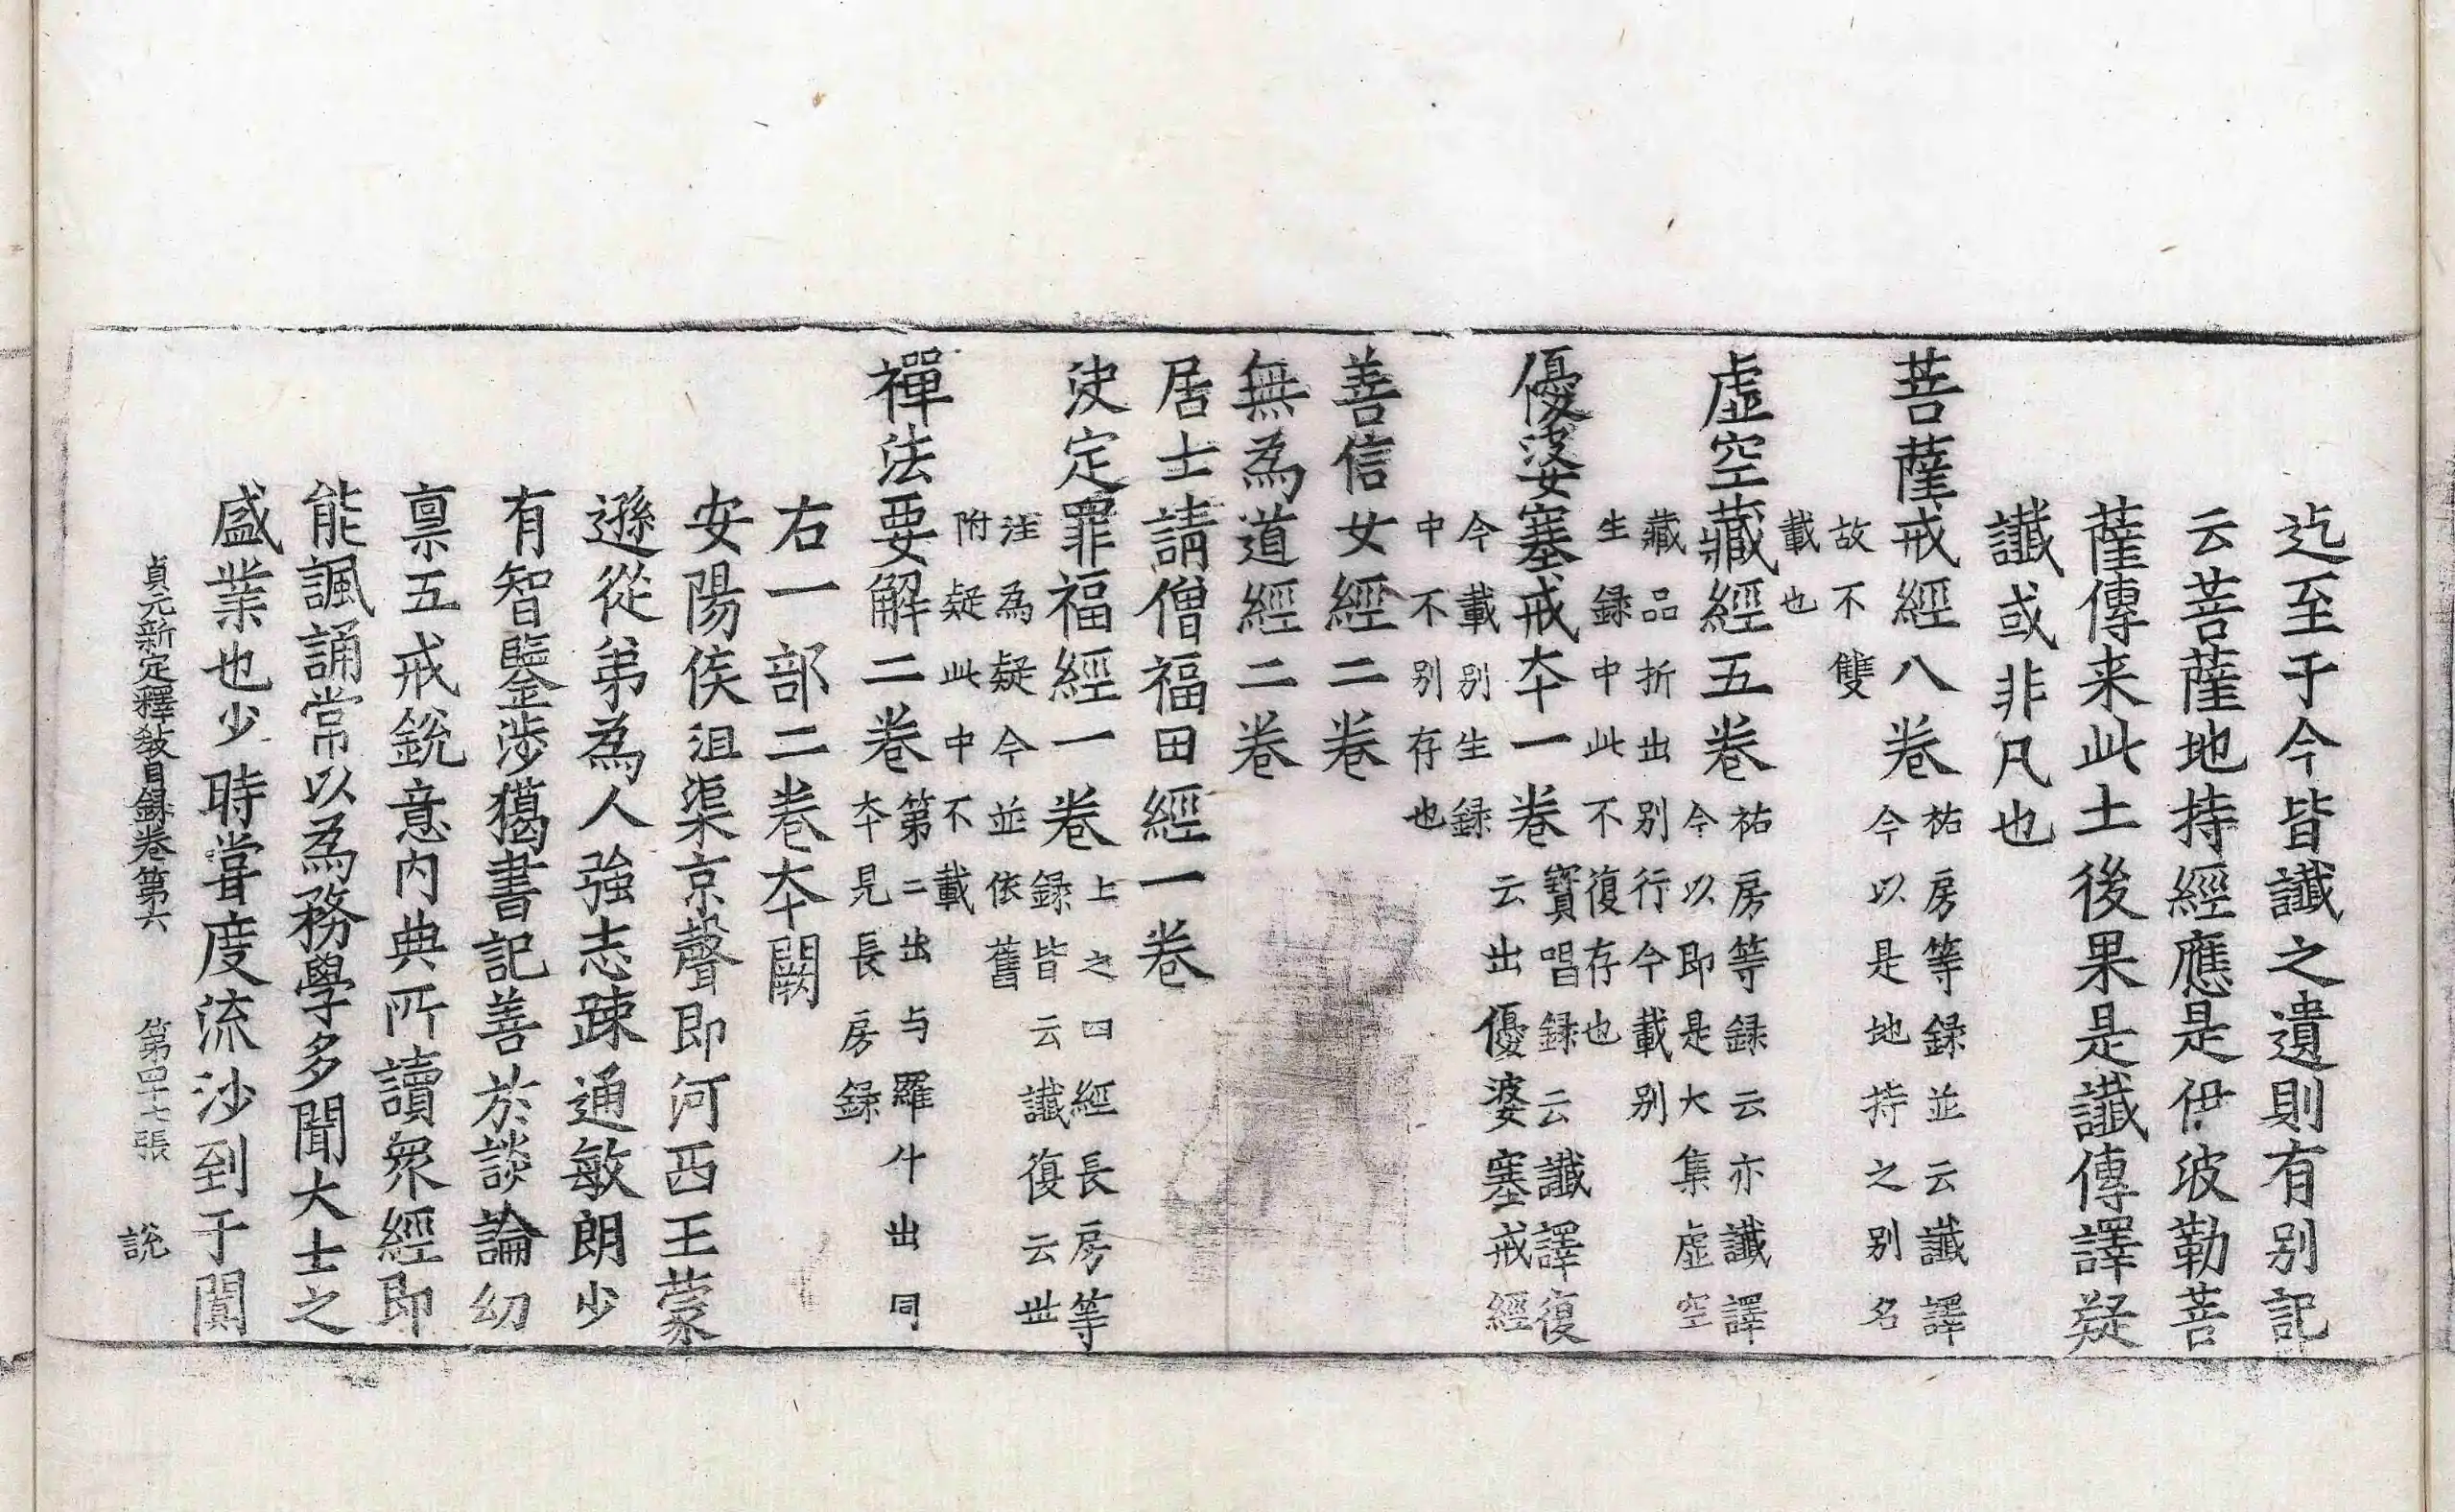 迄至于今皆讖之遺則有别記
云菩薩地持經應是伊波勒菩
薩傳来此土後果是讖傳譯疑
讖或非凡也
菩薩戒經八卷祐房等録並云讖譯
今以是地持之别名
故不雙
載也
虛空藏經五卷祐房等録云亦讖譯
今以即是大集虛空
藏品折出别行今載别
生録中此不復存也
優婆塞戒夲一卷寶唱録云讖譯復
云出優婆塞戒經
今載别生録
中不别存也
善信女經二卷
無為道經二卷
居士請僧福田經一卷
決定罪福經一卷上之四經長房等
録皆云讖復云世
注為疑今並依舊
附疑此中不載
禪法要解二卷第二出与羅什出同
夲見長房録
右一部二卷夲闕
安陽侯沮渠京聲即河西王蒙
遜從弟為人強志踈通敏朗少
有智鑒渉獦書記善於談論幼
禀五戒銳意内典所讀衆經即
能諷誦常以為務學多聞大士之
盛業也少時甞度流沙到于闐
貞元新定釋教目録卷第六　第四十七張　說